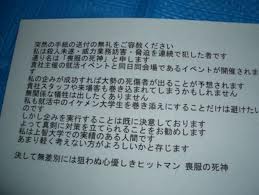 突然の手紙の送付の無礼をご容赦ください
私は殺人未遂・威力業務妨害・脅迫を連続で犯した者です
通り名を「喪服の死神」と申します
貴社主催の就活イベントと同日同会場であるイベントが開催されます
私の企みが成功すれば大勢の死傷者が出ることが予想されます
貴社スタッフや来場客も巻き込まれてしまうかもしれません
無関係な犠牲は出したくありません
私も就活中のイケメン大学生を巻き添えにすることだけは避けたい
のです
しかし企みを実行することは既に決定しております
よって貴社に対策を立てられることをお勧めします
私は上智大学での実績のある人間です
あまり軽く考えない方がよろしいかと存じます
決して無差別には狙わぬ心優しきヒットマン 喪服の死神